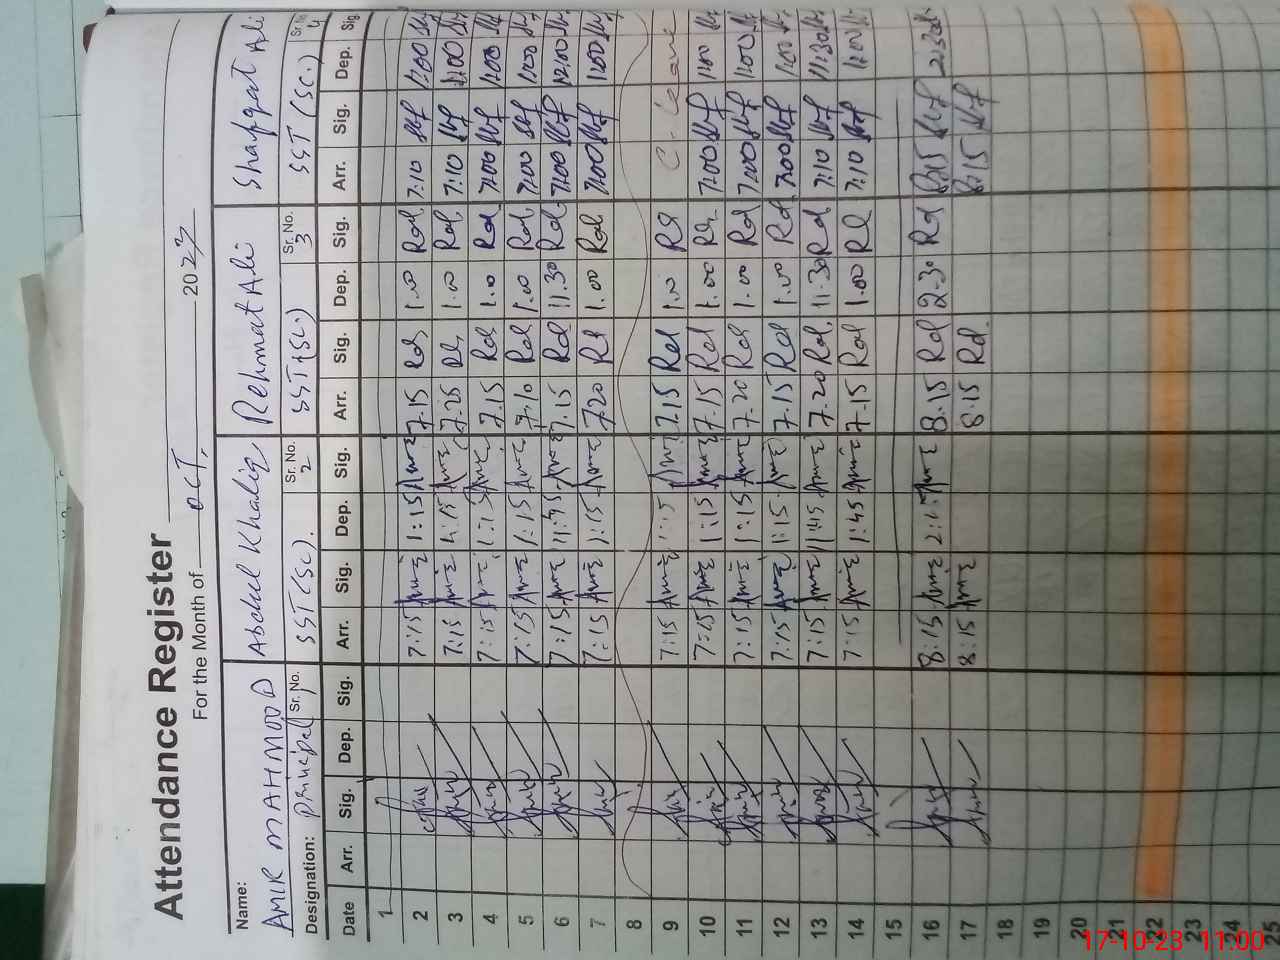 Attendance Register
For the Month of OCT, 2023
Name: AMIR MAHMOOD Abdul Khaliq Rehmat Ali Shafqat Ali
Designation: Principal Sr. No. 1 SST (SC). Sr. No. 2 SST (SC.) Sr. No. 3 SST (SC.) Sr. No. 4
Date Arr. Sig. Dep. Sig. Arr. Sig. Dep. Sig. Arr. Sig. Dep. Sig. Arr. Sig. Dep. Sig.
1
2 7:15 1:15 7.15 1.00 7:10 1:00
3 7:15 7.25 1.00 7:10 1:00
4 7:15 1:15 7.15 1.00 7:00 1:00
5 7:15 1:15 7.10 1.00 7:00 1:00
6 7:15 11:45 7.15 11.30 7:00 12:00
7 7:15 1:15 7.20 1.00 7:00 1:00
8
9 7:15 1:15 7.15 1.00 C-Leave
10 7:15 1:15 7.15 1.00 7:00 1:00
11 7:15 1:15 7.20 1.00 7:00 1:00
12 7:15 1:15 7.15 1.00 7:00 1:00
13 7:15 11:45 7.20 11.30 7:10 11:30
14 7:15 1:45 7.15 1.00 7:10 1:00
15
16 8:15 8.15 2.30 8:15 2:30
17 8:15 8.15 8:15
18
19
20
21
22
23
24
25
17-10-23 11:00